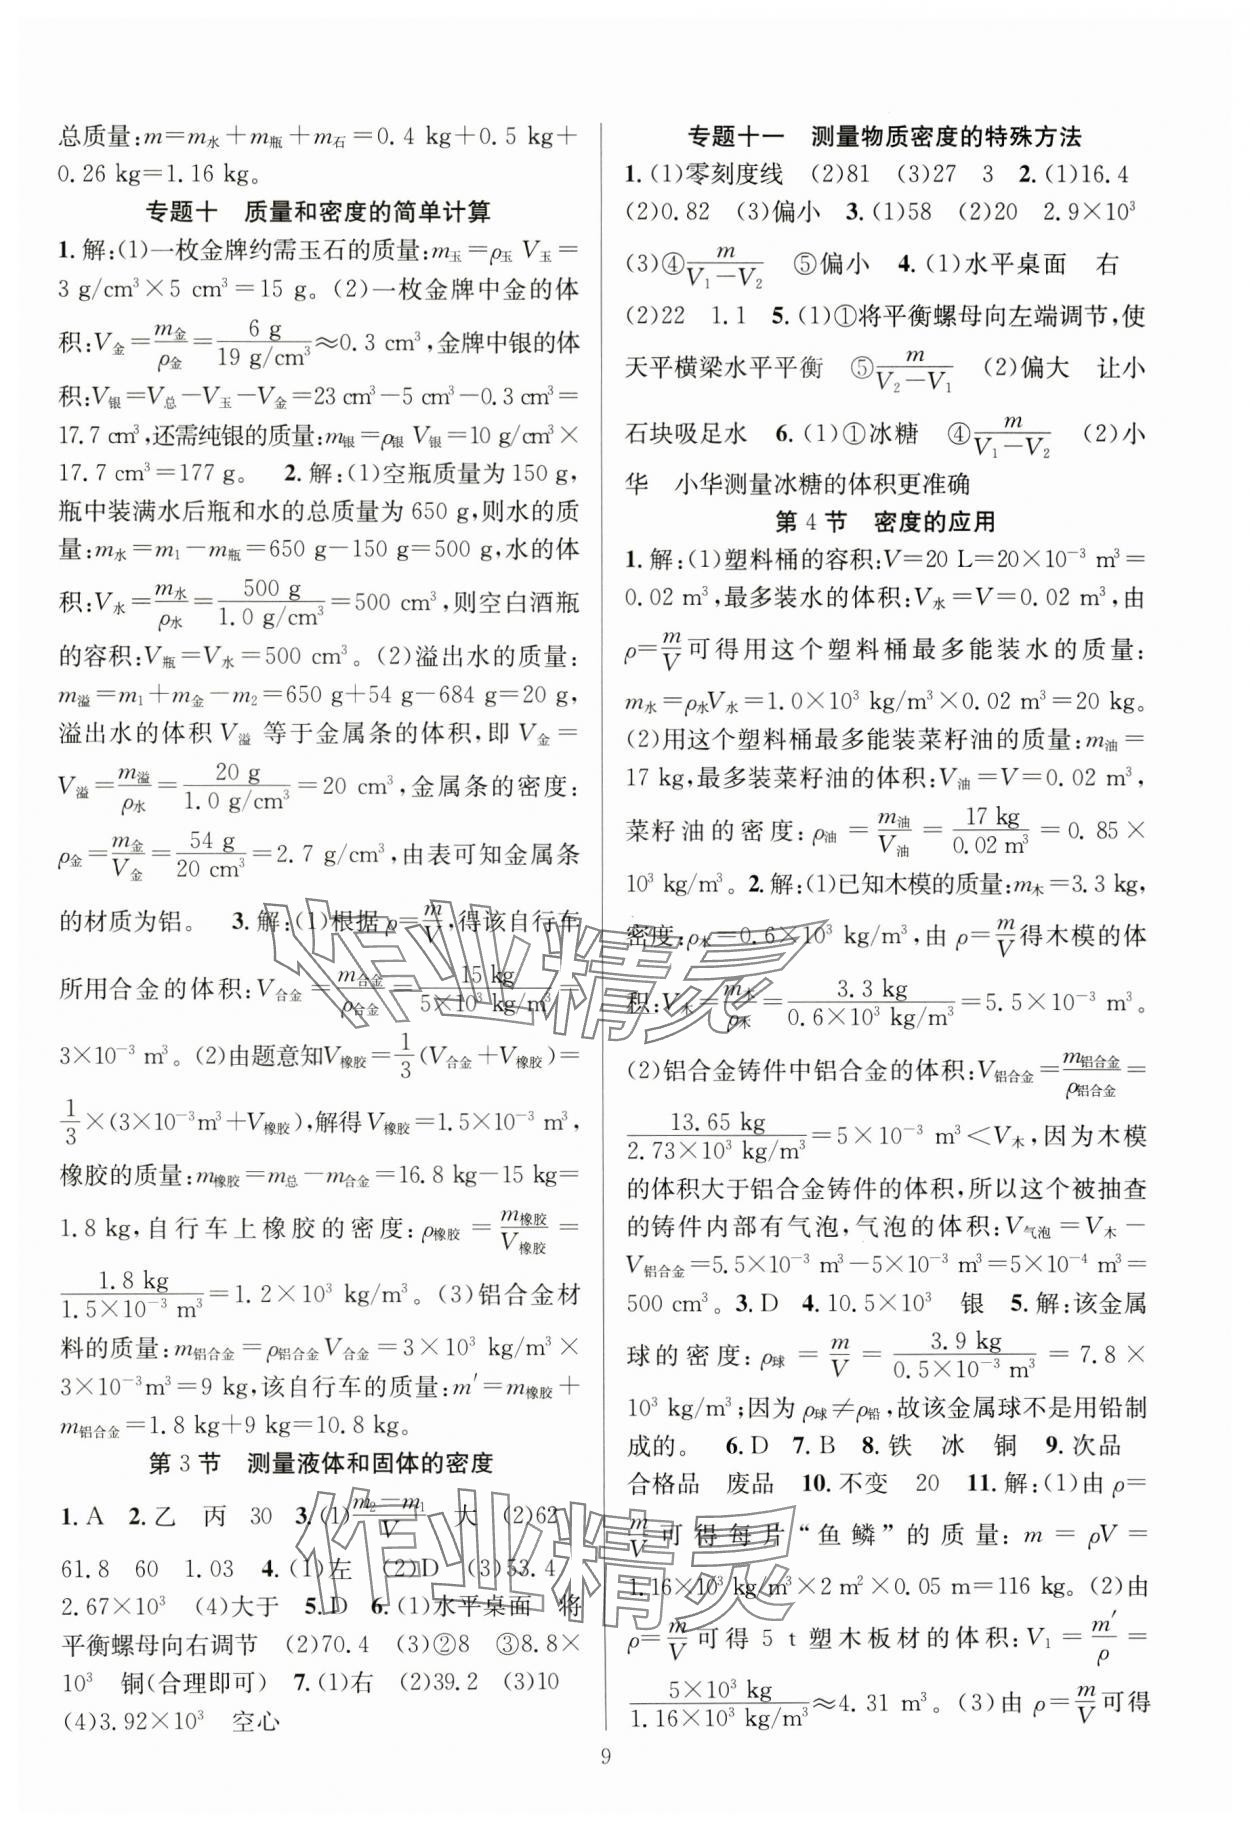 总质量:m=m水+m瓶+m石=0.4 kg+0.5 kg+
0.26 kg=1.16 kg。
专题十 质量和密度的简单计算
1. 解:(1)一枚金牌约需玉石的质量:m玉=ρ玉V玉=
3 g/cm³×5 cm³=15 g。(2)一枚金牌中金的体
积:V金=m金/ρ金=6 g/19 g/cm³≈0.3 cm³,金牌中银的体
积:V银=V总-V玉-V金=23 cm³-5 cm³-0.3 cm³=
17.7 cm³,还需纯银的质量:m银=ρ银V银=10 g/cm³×
17.7 cm³=177 g。 2. 解:(1)空瓶质量为 150 g,
瓶中装满水后瓶和水的总质量为 650 g,则水的质
量:m水=m₁-m瓶=650 g-150 g=500 g,水的体
积:V水=m水/ρ水=500 g/1.0 g/cm³=500 cm³,则空白酒瓶
的容积:V瓶=V水=500 cm³。(2)溢出水的质量:
m溢=m₁+m金-m₂=650 g+54 g-684 g=20 g,
溢出水的体积 V溢 等于金属条的体积,即 V金=
V溢=m溢/ρ水=20 g/1.0 g/cm³=20 cm³,金属条的密度:
ρ金=m金/V金=54 g/20 cm³=2.7 g/cm³,由表可知金属条
的材质为铝。 3. 解:(1)根据 ρ=m/V,得该自行车
所用合金的体积:V合金=m合金/ρ合金=15 kg/5×10³ kg/m³=
3×10⁻³ m³。(2)由题意知V橡胶=1/3(V合金+V橡胶)=
1/3×(3×10⁻³m³+V橡胶),解得 V橡胶=1.5×10⁻³ m³,
橡胶的质量:m橡胶=m总-m合金=16.8 kg-15 kg=
1.8 kg,自行车上橡胶的密度:ρ橡胶=m橡胶/V橡胶=
1.8 kg/1.5×10⁻³ m³=1.2×10³ kg/m³。(3)铝合金材
料的质量:m铝合金=ρ铝合金V合金=3×10³ kg/m³×
3×10⁻³m³=9 kg,该自行车的质量:m′=m橡胶+
m铝合金=1.8 kg+9 kg=10.8 kg。
第 3 节 测量液体和固体的密度
1. A 2. 乙 丙 30 3. (1)m₂-m₁/V 大 (2)62
61.8 60 1.03 4. (1)左 (2)D (3)53.4
2.67×10³ (4)大于 5. D 6. (1)水平桌面 将
平衡螺母向右调节 (2)70.4 (3)②8 ③8.8×
10³ 铜(合理即可) 7. (1)右 (2)39.2 (3)10
(4)3.92×10³ 空心
专题十一 测量物质密度的特殊方法
1. (1)零刻度线 (2)81 (3)27 3 2. (1)16.4
(2)0.82 (3)偏小 3. (1)58 (2)20 2.9×10³
(3)④m/V₁-V₂ ⑤偏小 4. (1)水平桌面 右
(2)22 1.1 5. (1)①将平衡螺母向左端调节,使
天平横梁水平平衡 ⑤m/V₂-V₁ (2)偏大 让小
石块吸足水 6. (1)①冰糖 ④m/V₁-V₂ (2)小
华 小华测量冰糖的体积更准确
第 4 节 密度的应用
1. 解:(1)塑料桶的容积:V=20 L=20×10⁻³ m³=
0.02 m³,最多装水的体积:V水=V=0.02 m³,由
ρ=m/V可得用这个塑料桶最多能装水的质量:
m水=ρ水V水=1.0×10³ kg/m³×0.02 m³=20 kg。
(2)用这个塑料桶最多能装菜籽油的质量:m油=
17 kg,最多装菜籽油的体积:V油=V=0.02 m³,
菜籽油的密度:ρ油=m油/V油=17 kg/0.02 m³=0.85×
10³ kg/m³。 2. 解:(1)已知木模的质量:m木=3.3 kg,
密度:ρ木=0.6×10³ kg/m³,由 ρ=m/V得木模的体
积:V木=m木/ρ木=3.3 kg/0.6×10³ kg/m³=5.5×10⁻³ m³。
(2)铝合金铸件中铝合金的体积:V铝合金=m铝合金/ρ铝合金=
13.65 kg/2.73×10³ kg/m³=5×10⁻³ m³<V木,因为木模
的体积大于铝合金铸件的体积,所以这个被抽查
的铸件内部有气泡,气泡的体积:V气泡=V木-
V铝合金=5.5×10⁻³ m³-5×10⁻³ m³=5×10⁻⁴ m³=
500 cm³。 3. D 4. 10.5×10³ 银 5. 解:该金属
球的密度:ρ球=m/V=3.9 kg/0.5×10⁻³ m³=7.8×
10³ kg/m³;因为 ρ球≠ρ铅,故该金属球不是用铅制
成的。 6. D 7. B 8. 铁 冰 铜 9. 次品
合格品 废品 10. 不变 20 11. 解:(1)由 ρ=
m/V可得每片“鱼鳞”的质量:m=ρV=
1.16×10³ kg/m³×2 m²×0.05 m=116 kg。(2)由
ρ=m/V可得 5 t 塑木板材的体积:V₁=m′/ρ=
5×10³ kg/1.16×10³ kg/m³≈4.31 m³。(3)由 ρ=m/V可得
9
作业精灵
作业精灵